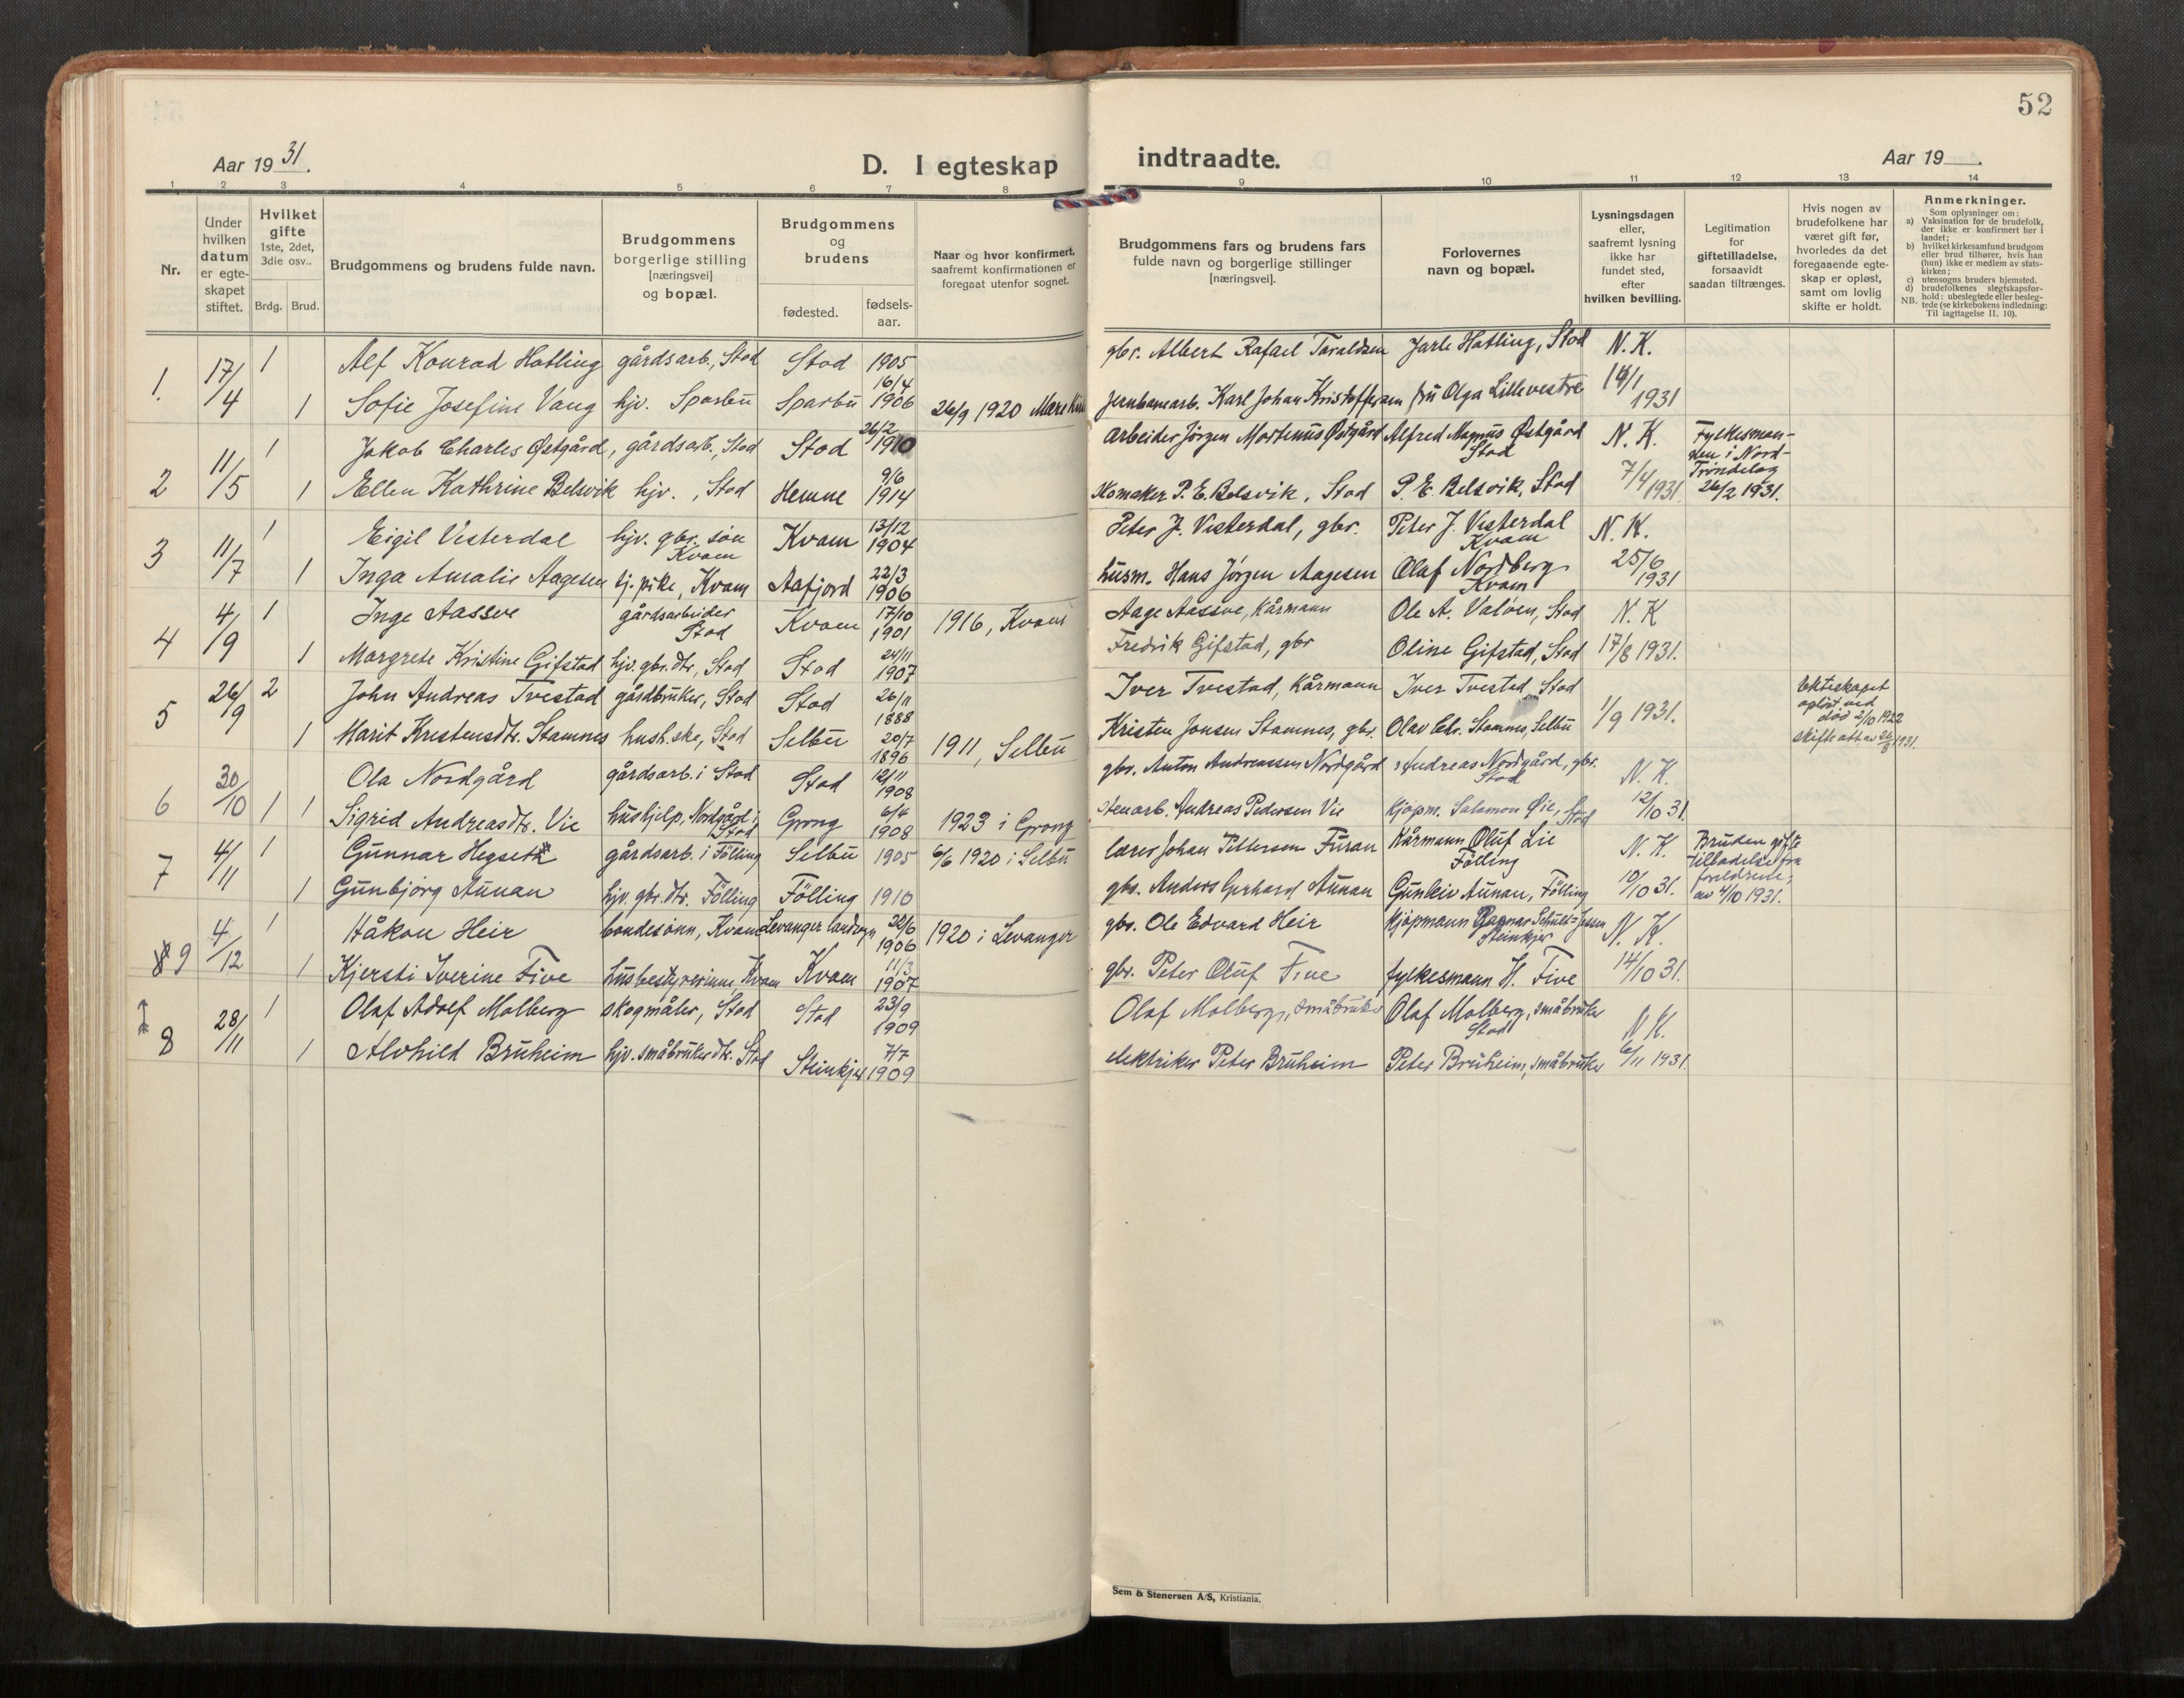 52
Aar 19 31.
D. I egteskap indtraadte.
Aar 19 .
1 2 3 4 5 6 7 8 9 10 11 12 13 14
Nr.
Under hvilken datum er egteskapet stiftet.
Hvilket gifte 1ste, 2det, 3die osv..
Brdg. Brud.
Brudgommens og brudens fulde navn.
Brudgommens borgerlige stilling [næringsvei] og bopæl.
Brudgommens og brudens
fødested.
fødsels-aar.
Naar og hvor konfirmert, saafremt konfirmationen er foregaat utenfor sognet.
Brudgommens fars og brudens fars fulde navn og borgerlige stillinger [næringsvei].
Forlovernes navn og bopæl.
Lysningsdagen eller, saafremt lysning ikke har fundet sted, efter hvilken bevilling.
Legitimation for giftetilladelse, forsaavidt saadan tiltrænges.
Hvis nogen av brudefolkene har været gift før, hvorledes da det foregaaende egteskap er opløst, samt om lovlig skifte er holdt.
Anmerkninger.
Som oplysninger om:
a) Vaksination for de brudefolk, der ikke er konfirmert her i landet;
b) hvilket kirkesamfund brudgom eller brud tilhører, hvis han (hun) ikke er medlem av statskirken;
c) utensogns bruders hjemsted.
d) brudefolkenes slegtskapsforhold: ubeslegtede eller beslegtede (se kirkebokens indledning:
NB. Til iagttagelse II. 10).
1. 17/4 1 Alf Konrad Hatling gårdsarb., Stod Stod 1905 gbr. Albert Rafael Taraldsen Jarle Hatling, Stod N. K.
1 Sofie Josefine Vang hjv. Sparbu Sparbu 16/4 1906 26/9 1920 Mære Jernbanearb. Karl Johan Kristoffersen fru Olga Lillevestre 1931
2 11/5 1 Jakob Charles Østgård, gårdsarb., Stod Stod 26/2 1910 Arbeider Jörgen Martenus Østgård Alfred Magnus Østgård Stod N. K. Fylkesmannen i Nord-Tröndelag 26/2 1931.
1 Ellen Kathrine Belsvik hjv., Stod Hemne 9/6 1914 Skomaker P. E. Belsvik, Stod P. E. Belsvik, Stod 7/4 1931
3 11/7 1 Eigil Vesterdal hjv. gbr. søn Kvam Kvam 13/12 1904 Peter J. Vesterdal, gbr. Peter J. Vesterdal Kvam N. K.
1 Inga Amalie Aagesen tj. pike, Kvam Aafjord 22/3 1906 husm. Hans Jörgen Aagesen Olaf Nordberg Kvam 25/6 1931
4 4/9 1 Inge Aasve gårdsarbeider Stod Kvam 17/10 1901 1916, Kvam Aage Aasve, kårmann Ole A. Valöen, Stod N. K
1 Margrete Kristine Gifstad hjv. gbr. dtr., Stod Stod 24/11 1907 Fredrik Gifstad, gbr Oline Gifstad, Stod 17/8 1931.
5 26/9 2 John Andreas Tvestad gårdbruker, Stod Stod 26/11 1888 Iver Tvestad, kårmann Iver Tvestad, Stod 1/9 1931. Ekteskapet oplöst ved död 2/10 1922 skifteatt. av 26/8 1931.
1 Marit Kristensdtr. Stamnes hush.ske, Stod Selbu 20/7 1896 1911, Selbu Kristen Jonsen Stamnes, gbr. Olav Chr. Stamnes, Selbu
6 30/10 1 1 Ola Nordgård gårdsarb. i Stod Stod 12/11 1908 gbr. Anton Andreassen Nordgård Andreas Nordgård, gbr. Stod N. K.
Sigrid Andreasdtr. Vie hushjelp, Nordgård i Stod Grong 6/4 1908 1923 i Grong Stenarb. Andreas Pedersen Vie Kjöpm. Salamon Øie, Stod 12/10 31.
7 4/11 1 Gunnar Hegseth gårdsarb. i Fölling Selbu 1905 6/6 1920 i Selbu lærer Johan Pettersen Furan Kårmann Oluf Lie Fölling N. K. Bruden gifte tilladelse fra foreldrene, av 4/10 1931.
1 Gunbjörg Aunan hjv. gbr. dtr. Fölling Fölling 1910 gbr. Anders Gerhard Aunan Gunleiv Aunan, Fölling 10/10 31.
8 9 4/12 1 Håkon Heir bondesönn, Kvam Levanger landsogn 22/6 1906 1920 i Levanger gbr. Ole Edvard Heir Kjöpmann Ragnar Schult-Jessen Steinkjer N. K.
1 Kjersti Iverine Five husbestyrerinne, Kvam Kvam 11/3 1907 gbr. Peter Oluf Five fylkesmann H. Five 14/10 31.
8 28/11 1 Olaf Adolf Malberg skogmåler, Stod Stod 23/9 1909 Olaf Malberg, småbruker Olaf Malberg, småbruker Stod N K.
1 Alvhild Bruheim hjv. småbruker dtr. Stod Steinkjer 7/7 1909 elektriker Peter Bruheim Peter Bruheim, småbruker 6/11 1931.
Sem & Stenersen A/S, Kristiania.